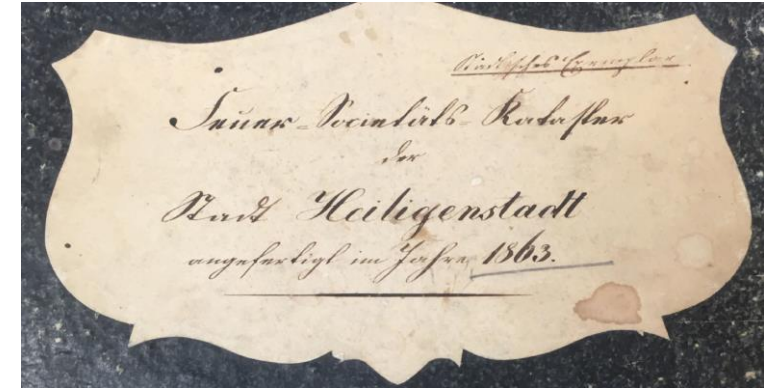 Städtisches Exemplar.
Feuer-Societäts-Kataster
der
Stadt Heiligenstadt
angefertigt im Jahre 1863.